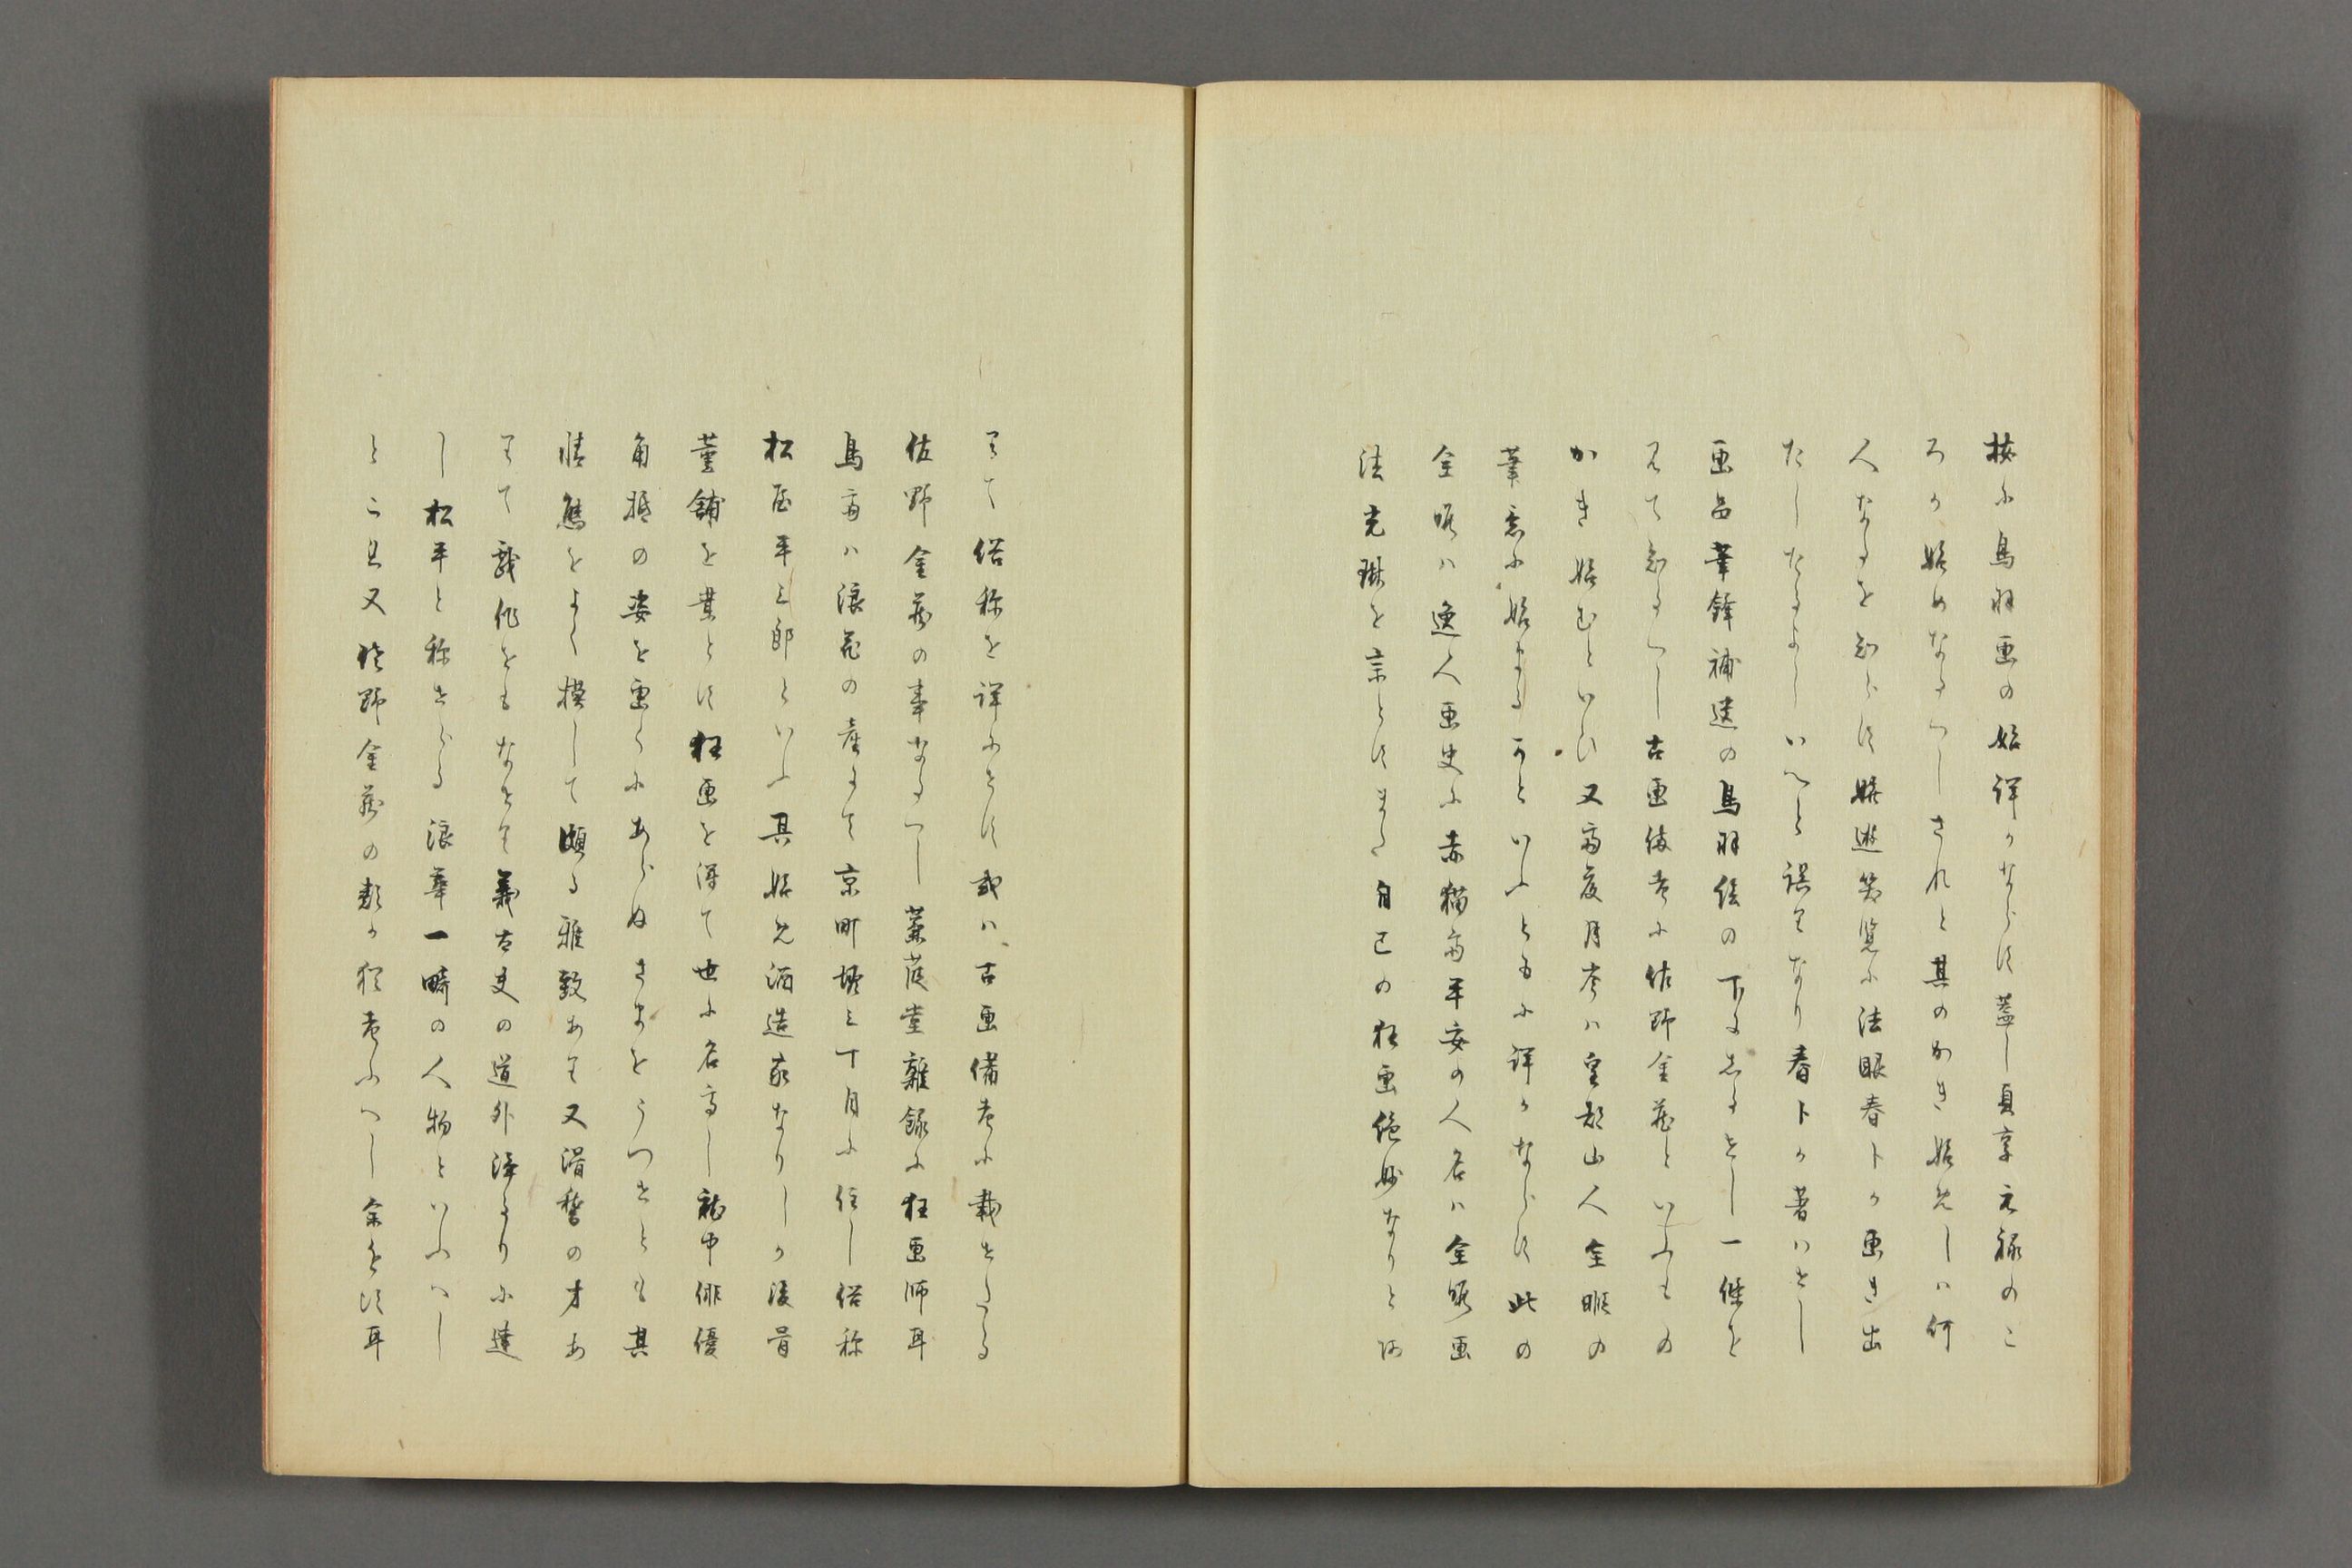 按に鳥羽画の始詳かならす蓋し貞享元禄のこ
ろか始めなるへしされと其のかき始めしハ何
人なるを知らす嬉遊笑覧に法眼春卜か画き出
たしたるよしいへと誤りなり春卜か著ハせし
画品筆鋒補遺の鳥羽絵の下にしるせし一條を
見て知るへし古画備考に佐野金蔵といふもの
かき始むといひ又高夜月考ハ皇都山人全暇の
筆意に始まるかといふともに詳かならす此の
全暇ハ逸人画史に赤猫斎平安の人名ハ全暇画
法光琳を宗とすまた自己の狂画絶妙なりとあ
りて俗称を詳にせす或ハ古画備考に載せたる
佐野金蔵の事なるへし蒹葭堂雑録に狂画師耳
鳥斎ハ浪花の産にて京町堀三丁目に住し俗称
松屋平三郎といふ其始め酒造家なりしか後骨
董舗を業とす狂画を得て世に名高し就中俳優
角抵の姿を画くにあらぬさまをうつせとも其
情態をよく模して頗る雅致あり又滑稽の才あ
りて戯作をもなせり義太夫の道外浄るりに達
し松平と称せらる浪華一畸の人物といふへし
とこ且又佐野金蔵の類か猶考ふへし 耳